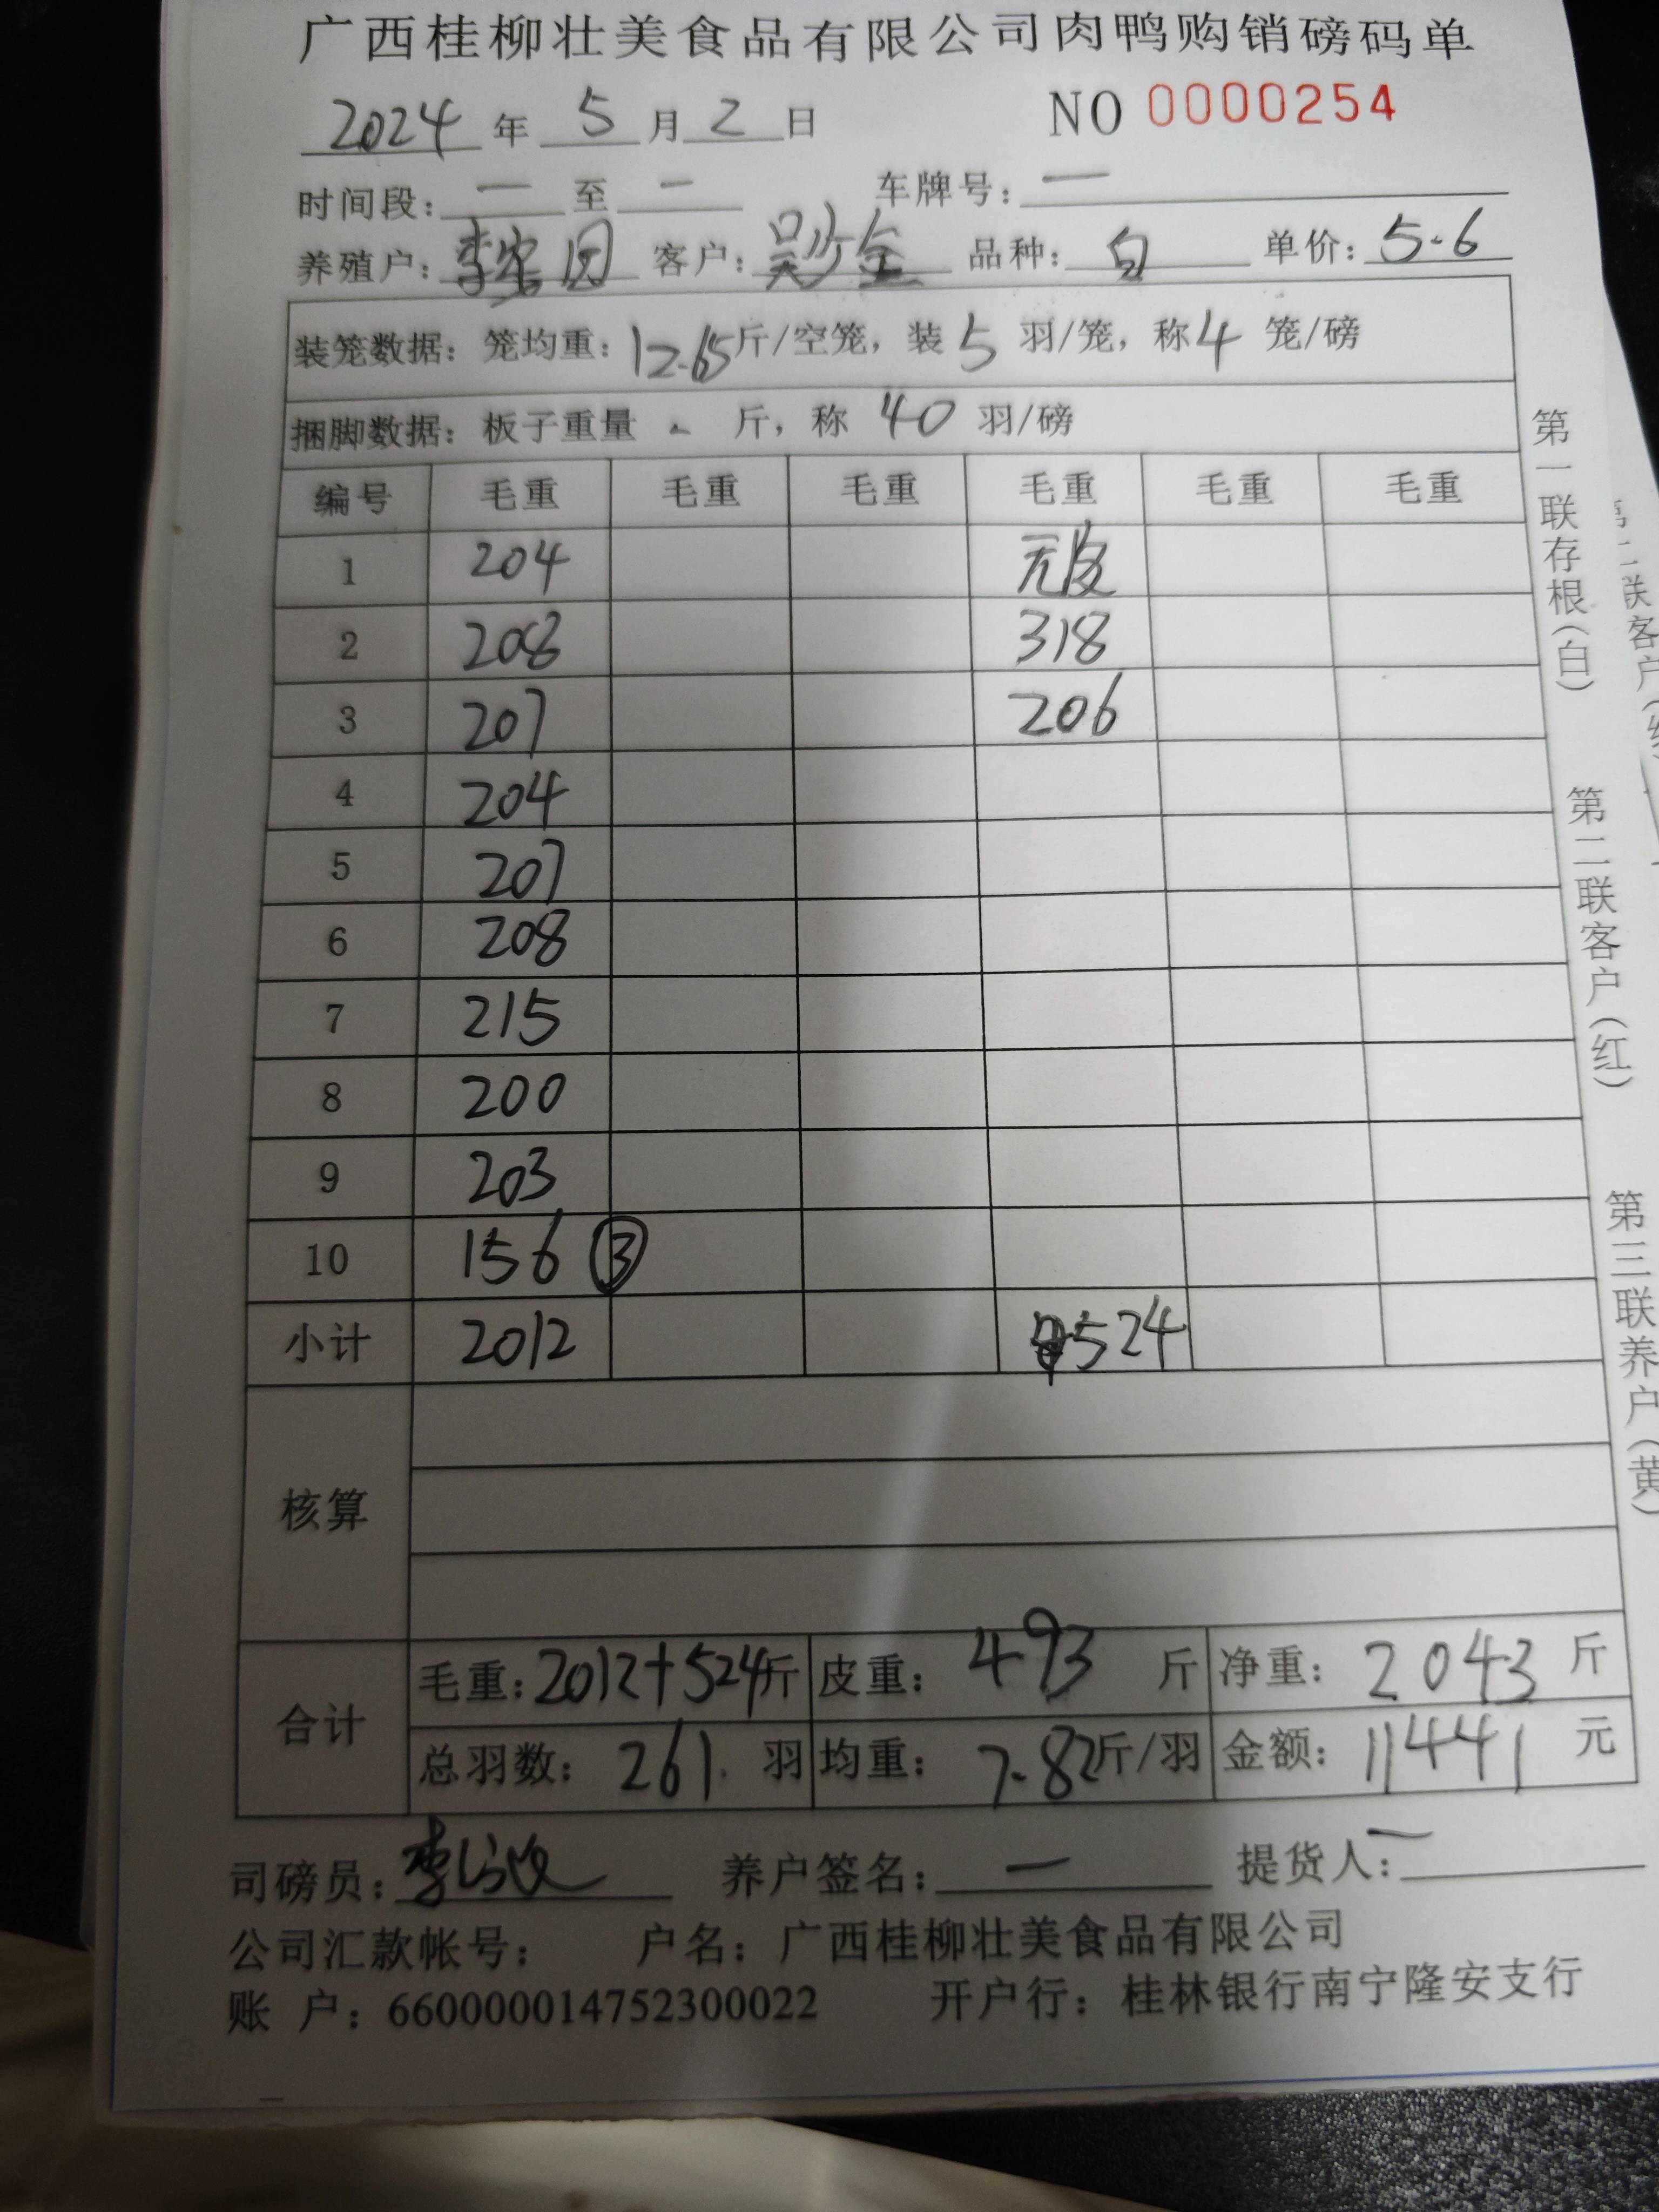 广西桂柳壮美食品有限公司肉鸭购销磅码单
2024 年 5 月 2 日 NO 0000254
时间段: 一 至 一 车牌号: 一
养殖户: 李 客户: 吴少金 品种: 白 单价: 5.6
装笼数据: 笼均重: 12.65 斤/空笼, 装 5 羽/笼, 称 4 笼/磅
捆脚数据: 板子重量 斤, 称 40 羽/磅
编号 毛重 毛重 毛重 毛重 毛重 毛重
1 204 无皮
2 208 318
3 207 206
4 204
5 207
6 208
7 215
8 200
9 203
10 156 ③
小计 2012 524
核算
合计 毛重: 2012+524 斤 皮重: 493 斤 净重: 2043 斤
总羽数: 261 羽 均重: 7.82 斤/羽 金额: 11441 元
司磅员: 李 养户签名: 一 提货人: 一
公司汇款帐号: 户名: 广西桂柳壮美食品有限公司
账 户: 660000014752300022 开户行: 桂林银行南宁隆安支行
第一联存根(白)
第二联客户(红)
第三联养户(黄)